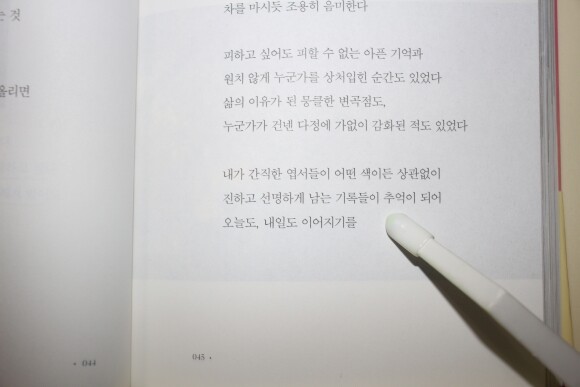 는 것
올리면
044
차를 마시듯 조용히 음미한다
피하고 싶어도 피할 수 없는 아픈 기억과
원치 않게 누군가를 상처입힌 순간도 있었다
삶의 이유가 된 뭉클한 변곡점도,
누군가가 건넨 다정에 가없이 감화된 적도 있었다
내가 간직한 엽서들이 어떤 색이든 상관없이
진하고 선명하게 남는 기록들이 추억이 되어
오늘도, 내일도 이어지기를
045